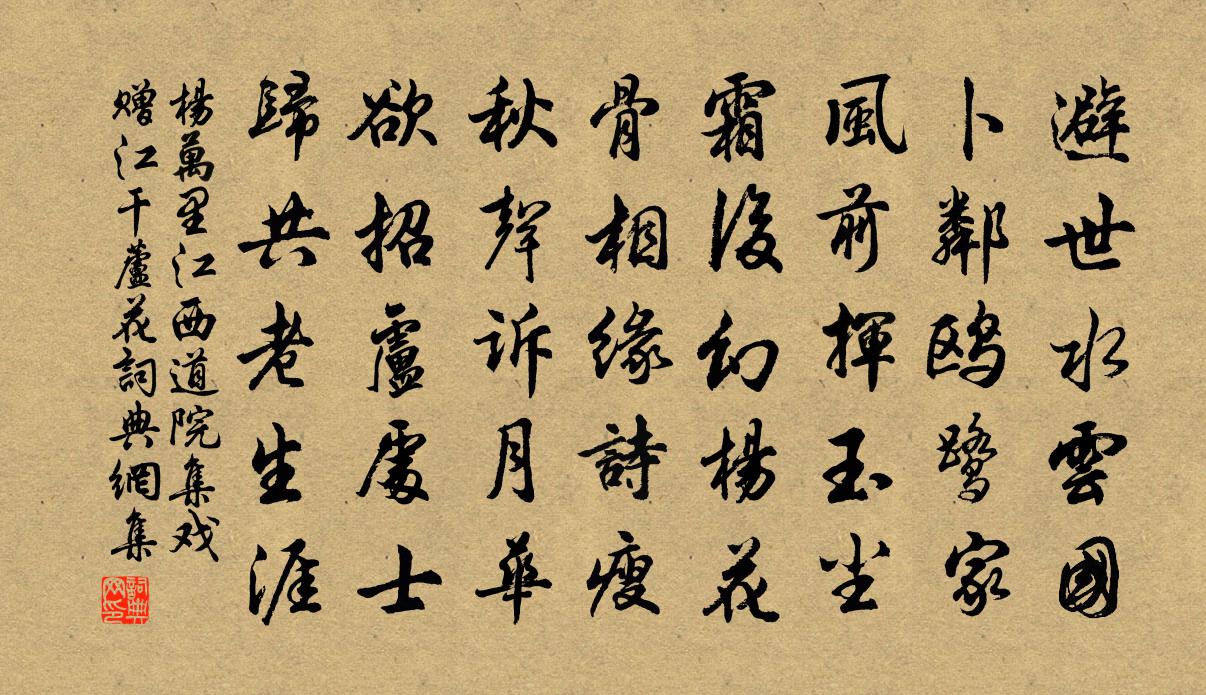 避世水雲國
卜鄰鸥鹭家
風前揮玉尘
霜後幻楊花
骨相緣詩瘦
秋聲訴月華
欲招盧處士
歸共老生涯
楊萬里江西道院集戏
赠江干蘆花詞典網集
詞典
网印